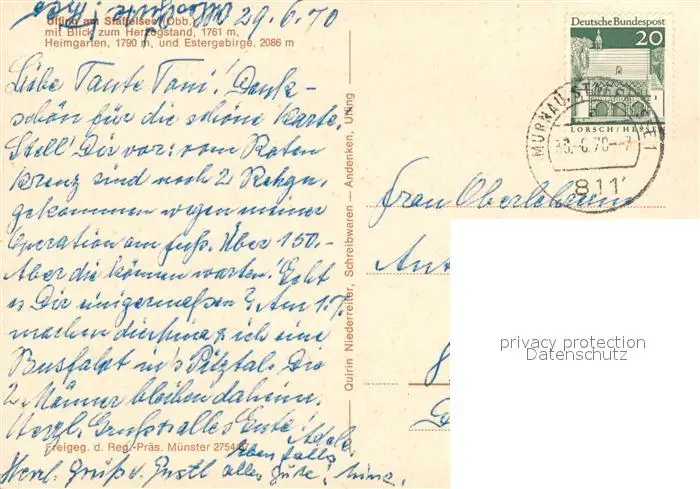 29.6.70
Uffing am Staffelsee (Obb.)
mit Blick zum Herzogstand, 1761 m,
Heimgarten, 1790 m, und Estergebirge, 2086 m
Liebe Tante Toni! Dank-
schön für die schöne Karte.
Stell' Dir vor: vom Roten
Kreuz sind noch 2 Rchgn.
gekommen wegen meiner
Operation am Fuß. Über 150.-
Aber die können warten! Geht
es Dir einigermaßen? Am 1.7.
machen die Mina & ich eine
Busfahrt in's Pitztal. Die
2 Männer bleiben daheim.
Herzl. Grüße alles Gute! Adele
Freigeg. d. Reg.-Präs. Münster
Herzl. Grüße v. Gustl
ebenfalls
alles Gute! Mina
Quirin Niederreiter, Schreibwaren — Andenken, Uffing
Deutsche Bundespost
20
LORSCH/HESSEN
MURNAU
811
Frau Oberlehrerin
privacy protection
Datenschutz